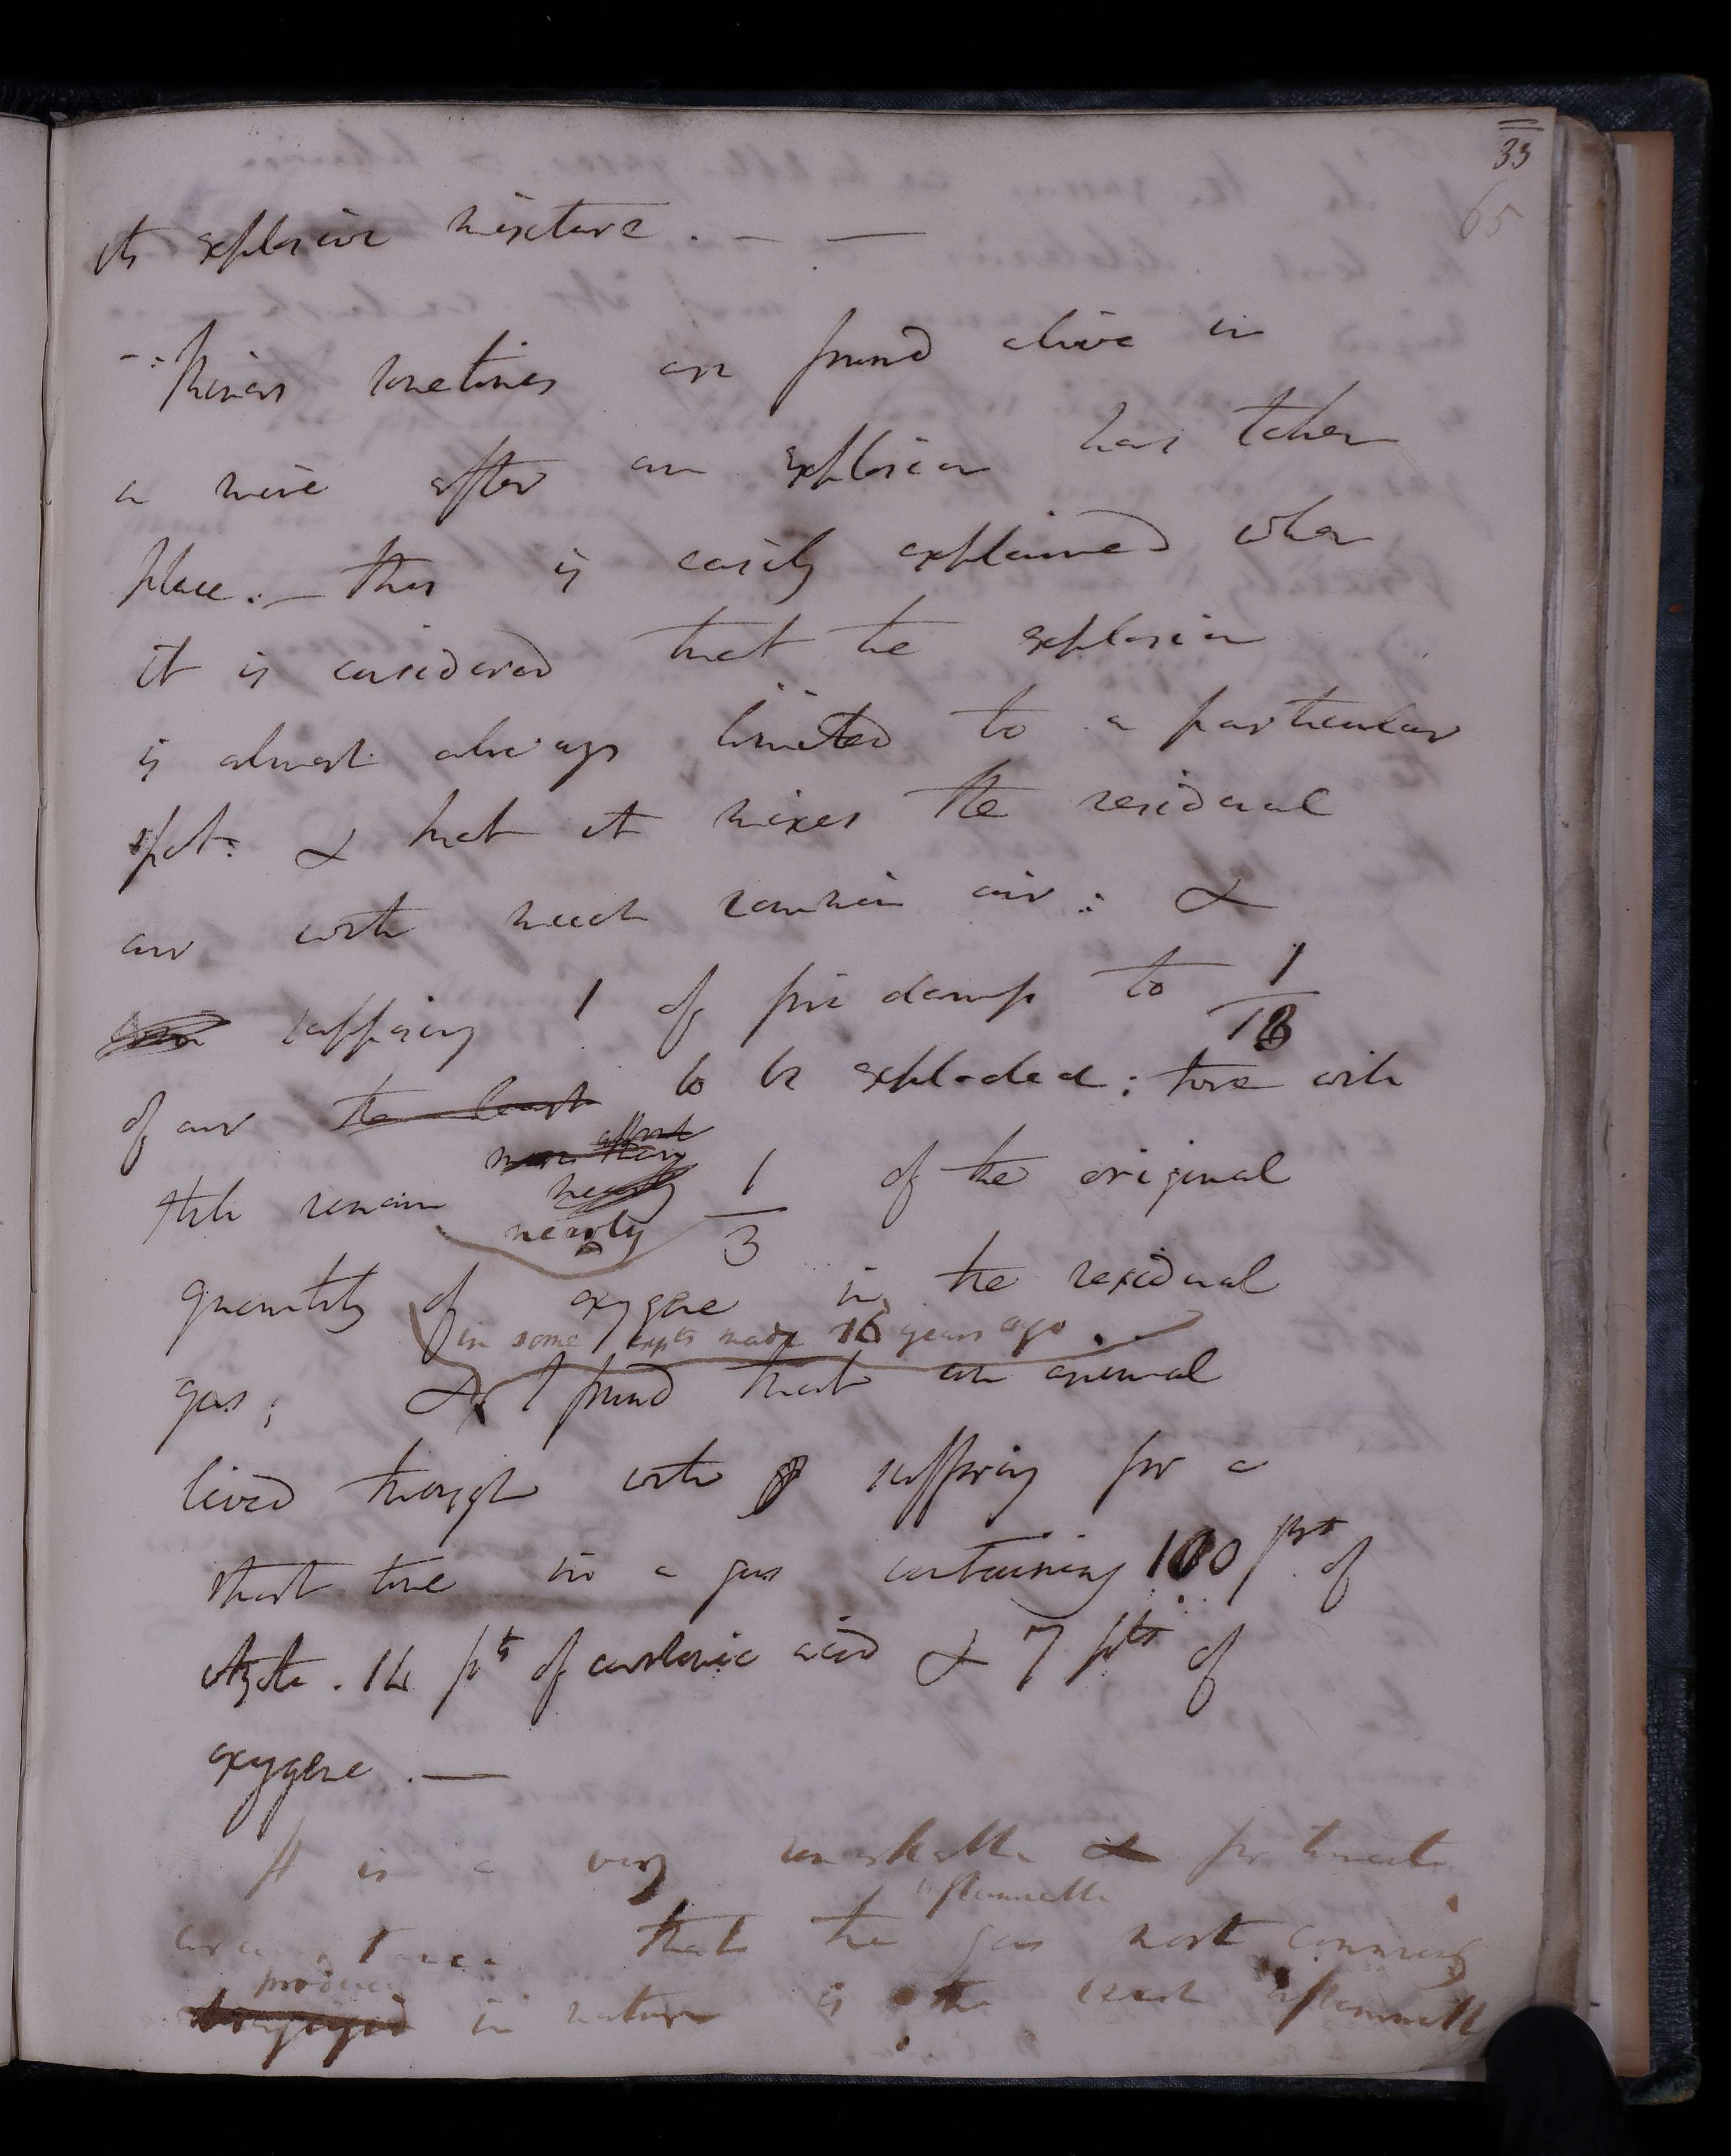 33
65
its explosive mixture. — —
—: Miners sometimes are found alive in
a mine after an explosion has taken
place. — this is easily explained when
it is considered that the explosion
is almost always limited to a particular
spot: & that it mixes the residual
air with much common air: &
supposing 1 of fire damp to 1/18
of air the least to be exploded: there will
still remain more than about nearly nearly 1/3 of the original
quantity of oxygene in the residual
in some expts made 16 years ago.
gas; & I found that an animal
lived though with suffering for a
short time in a gas containing 100 pts of
Azote. 14 pts of carbonic acid & 7 pts of
oxygene. —
It is a very remarkable & fortunate
inflammable
circumstance that the gas most commonly
produced
in nature is the least inflammable